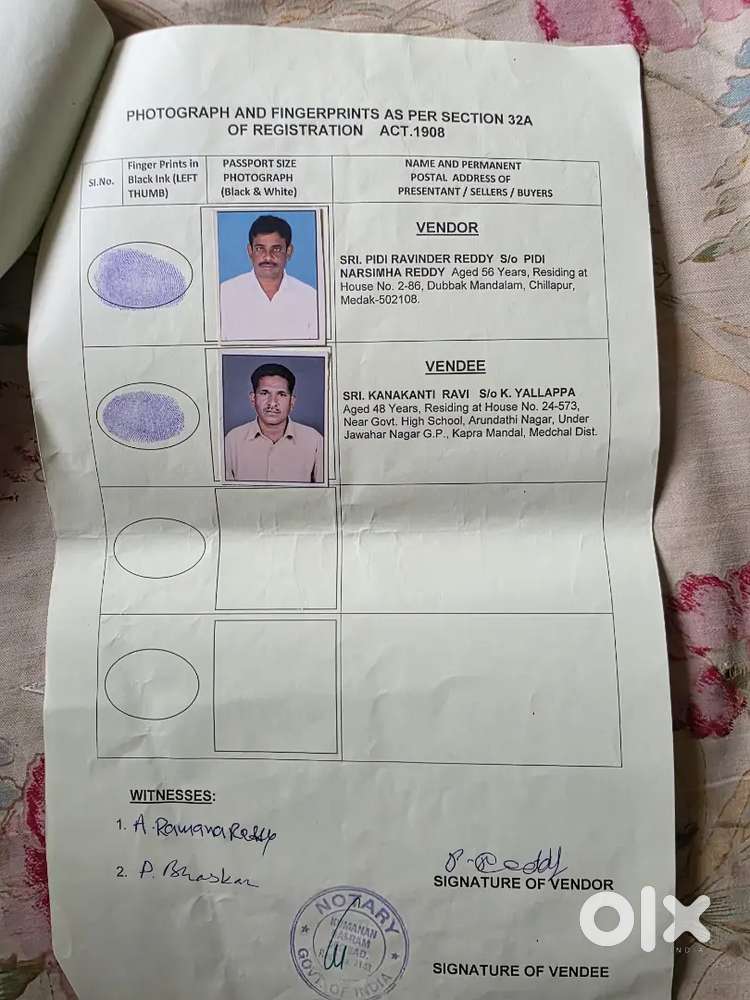 PHOTOGRAPH AND FINGERPRINTS AS PER SECTION 32A
OF REGISTRATION ACT.1908
Sl.No.
Finger Prints in
Black Ink (LEFT
THUMB)
PASSPORT SIZE
PHOTOGRAPH
(Black & White)
NAME AND PERMANENT
POSTAL ADDRESS OF
PRESENTANT / SELLERS / BUYERS
VENDOR
SRI. PIDI RAVINDER REDDY S/o PIDI
NARSIMHA REDDY Aged 56 Years, Residing at
House No. 2-86, Dubbak Mandalam, Chillapur,
Medak-502108.
VENDEE
SRI. KANAKANTI RAVI S/o K. YALLAPPA
Aged 48 Years, Residing at House No. 24-573,
Near Govt. High School, Arundathi Nagar, Under
Jawahar Nagar G.P., Kapra Mandal, Medchal Dist.
WITNESSES:
1. A. Ramana Reddy
2. P. Bhaskar
P. Reddy
SIGNATURE OF VENDOR
NOTARY
GOVT. OF INDIA
SIGNATURE OF VENDEE
olx
INDIA